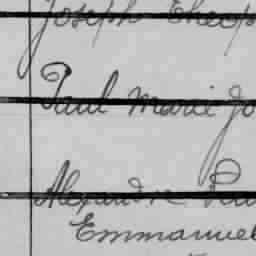 Joseph Theop
Paul Marie Jo
Alexandre Pau
Emmanuel